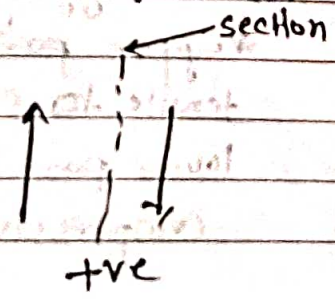 section
+ve